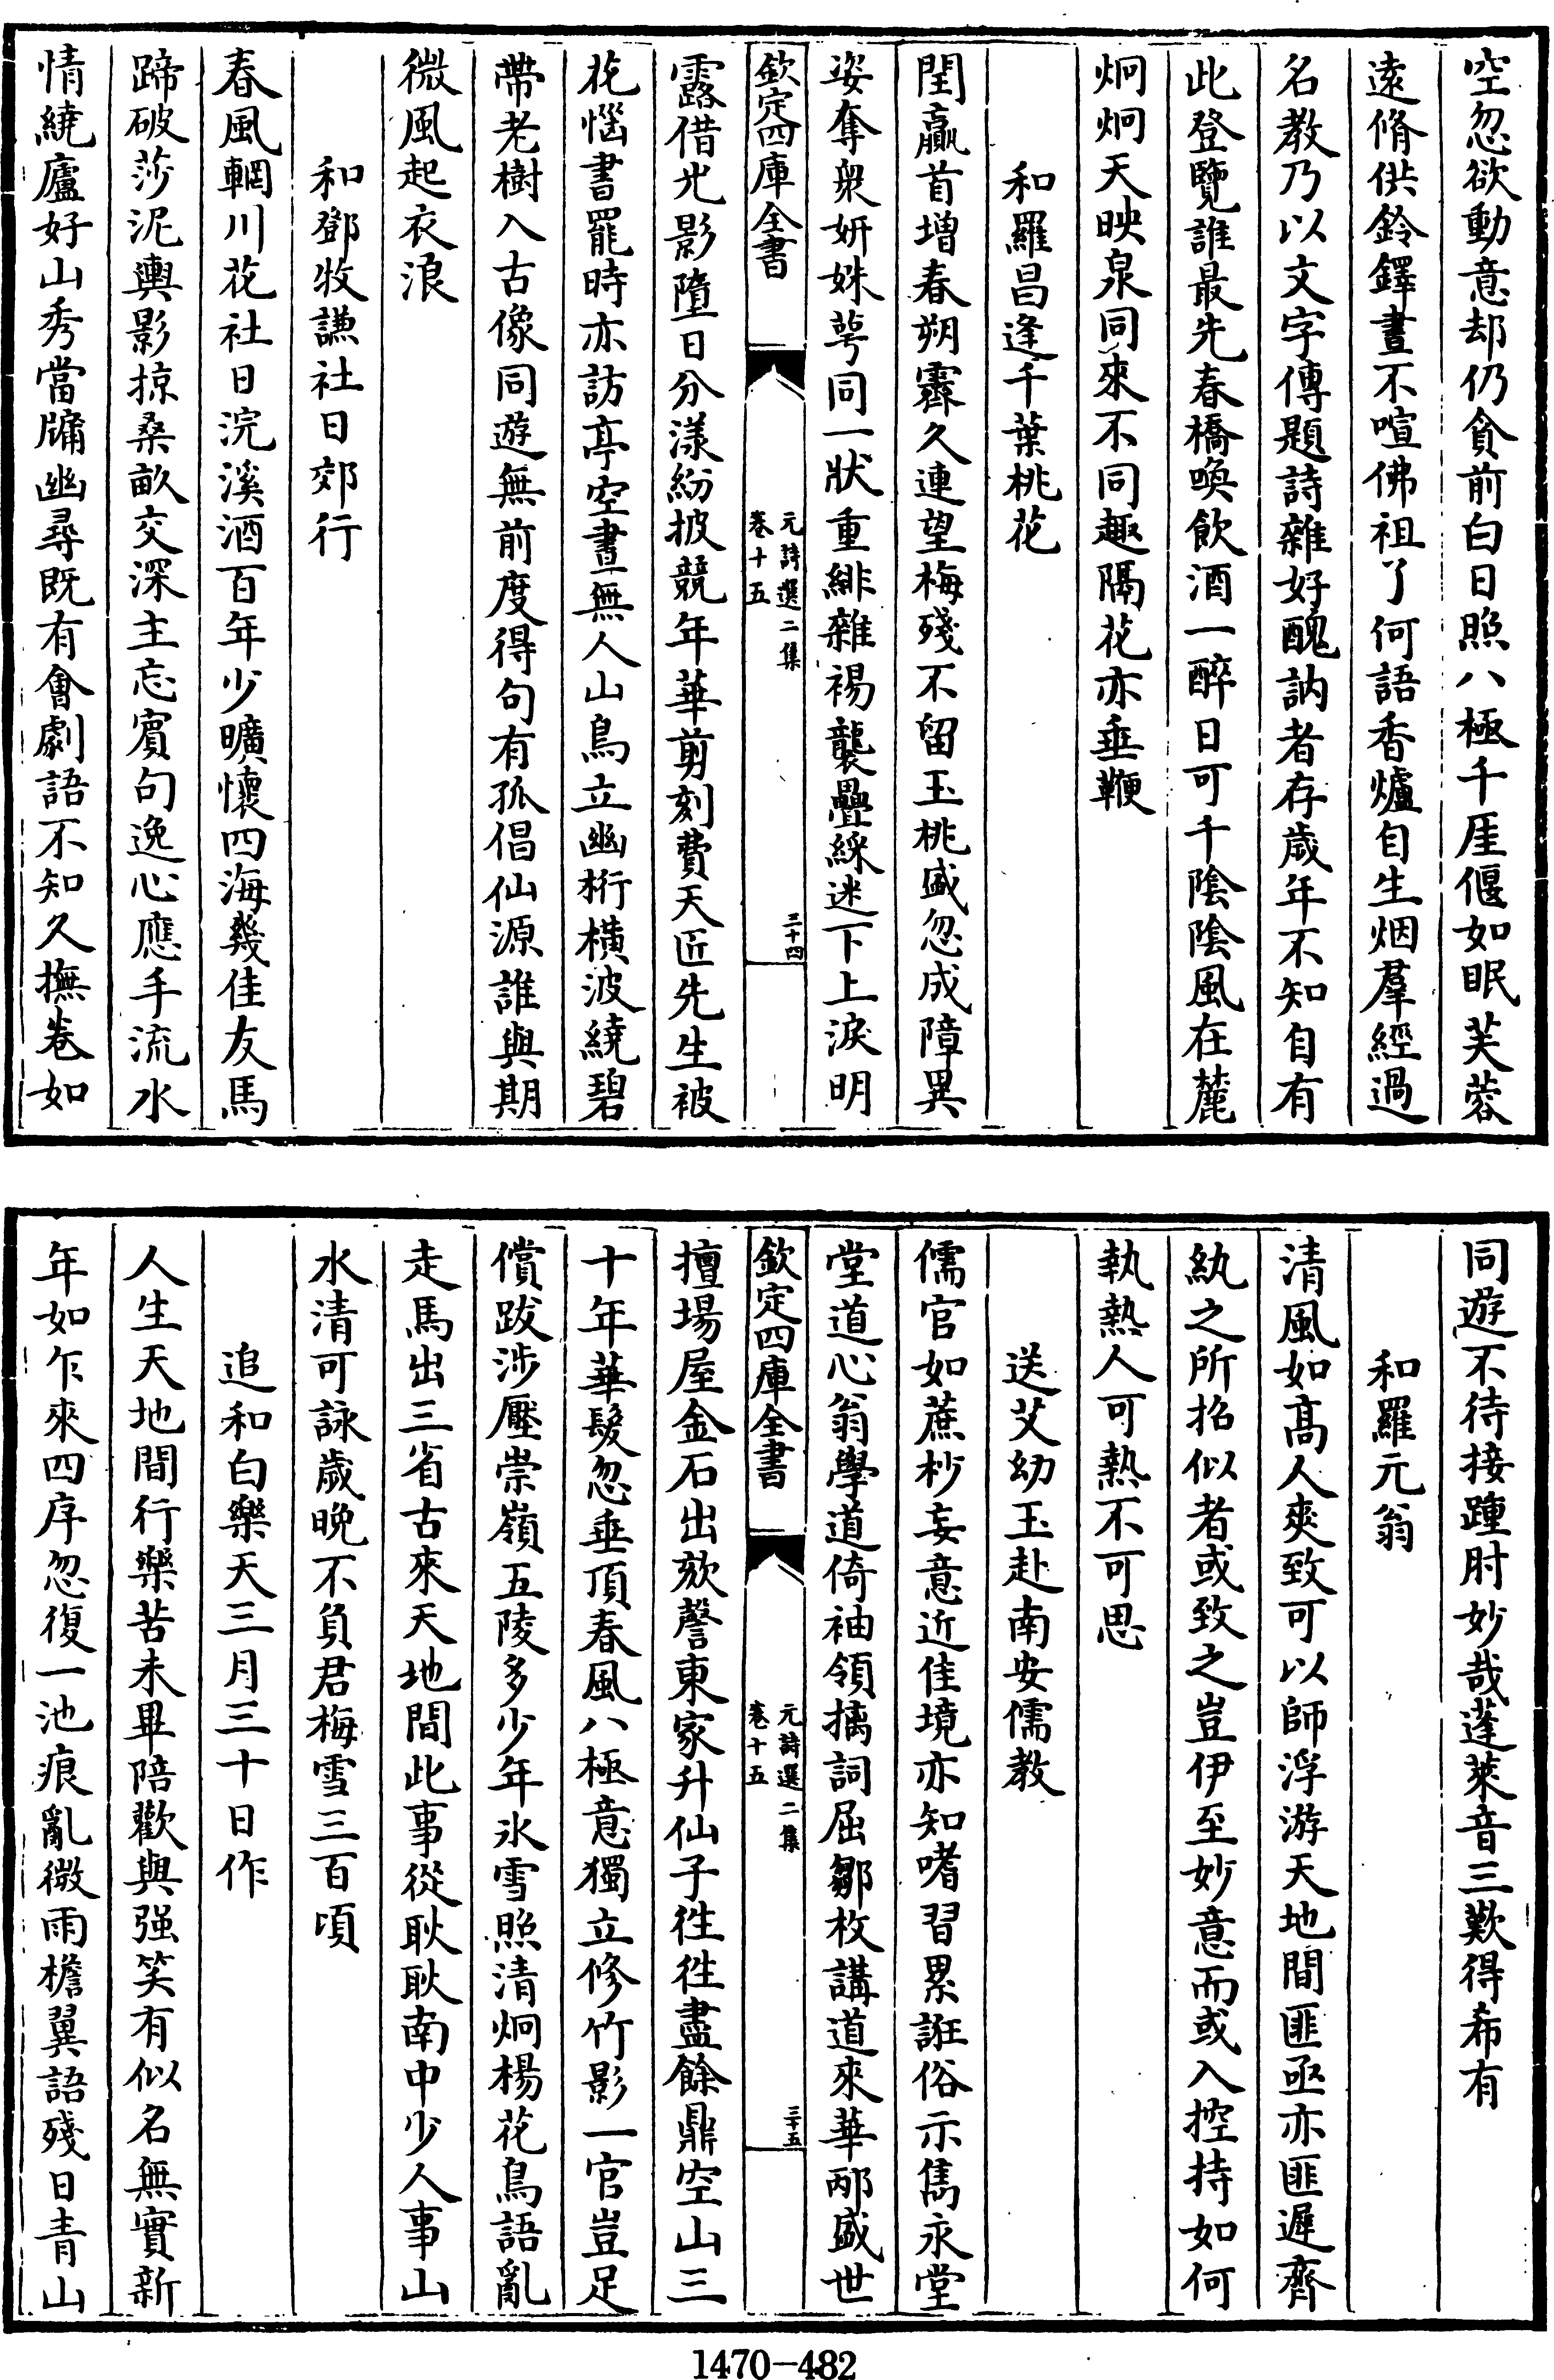 空忽欲動意却仍貪前白日照八極千厓偃如眠芙蓉
遠脩供鈴鐸晝不喧佛祖了何語香爐自生烟羣經過
名教乃以文字傳題詩雜好醜訥者存歲年不知自有
此登覽誰最先春橋喚飲酒一醉日可千陰陰風在麓
炯炯天映泉同來不同趣隔花亦垂鞭
和羅昌逢千葉桃花
閏贏首增春朔霽久連望梅殘不留玉桃盛忽成障異
姿奪衆妍姝萼同一狀重緋雜裼襲疊綵迷下上淚明
欽定四庫全書
元詩選二集
卷十五
三十四
露借光影墮日分漾紛披競年華剪刻費天匠先生被
花惱書罷時亦訪亭空晝無人山鳥立幽桁橫波繞碧
帶老樹入古像同遊無前度得句有孤倡仙源誰與期
微風起衣浪
和鄧牧謙社日郊行
春風輞川花社日浣溪酒百年少曠懷四海幾佳友馬
蹄破莎泥輿影掠桑畝交深主忘賓句逸心應手流水
情繞廬好山秀當牖幽尋既有會劇語不知久撫卷如
同遊不待接踵肘妙哉蓬萊音三歎得希有
和羅元翁
清風如髙人爽致可以師浮游天地間匪亟亦匪遲齊
紈之所招似者或致之豈伊至妙意而或入控持如何
執熱人可熱不可思
送艾幼玉赴南安儒教
儒官如蔗杪妄意近佳境亦知嗜習累誑俗示雋永堂
堂道心翁學道倚袖領摛詞屈鄒枚講道來華邴盛世
欽定四庫全書
元詩選二集
卷十五
三十五
擅場屋金石出欬謦東家升仙子徃徃盡餘鼎空山三
十年華髮忽垂頂春風八極意獨立修竹影一官豈足
償跋涉壓崇嶺五陵多少年氷雪照清炯楊花鳥語亂
走馬出三省古來天地間此事從耿耿南中少人事山
水清可詠歲晚不負君梅雪三百頃
追和白樂天三月三十日作
人生天地間行樂苦未畢陪歡與强笑有似名無實新
年如乍來四序忽復一池痕亂微雨檐翼語殘日青山
1470-482